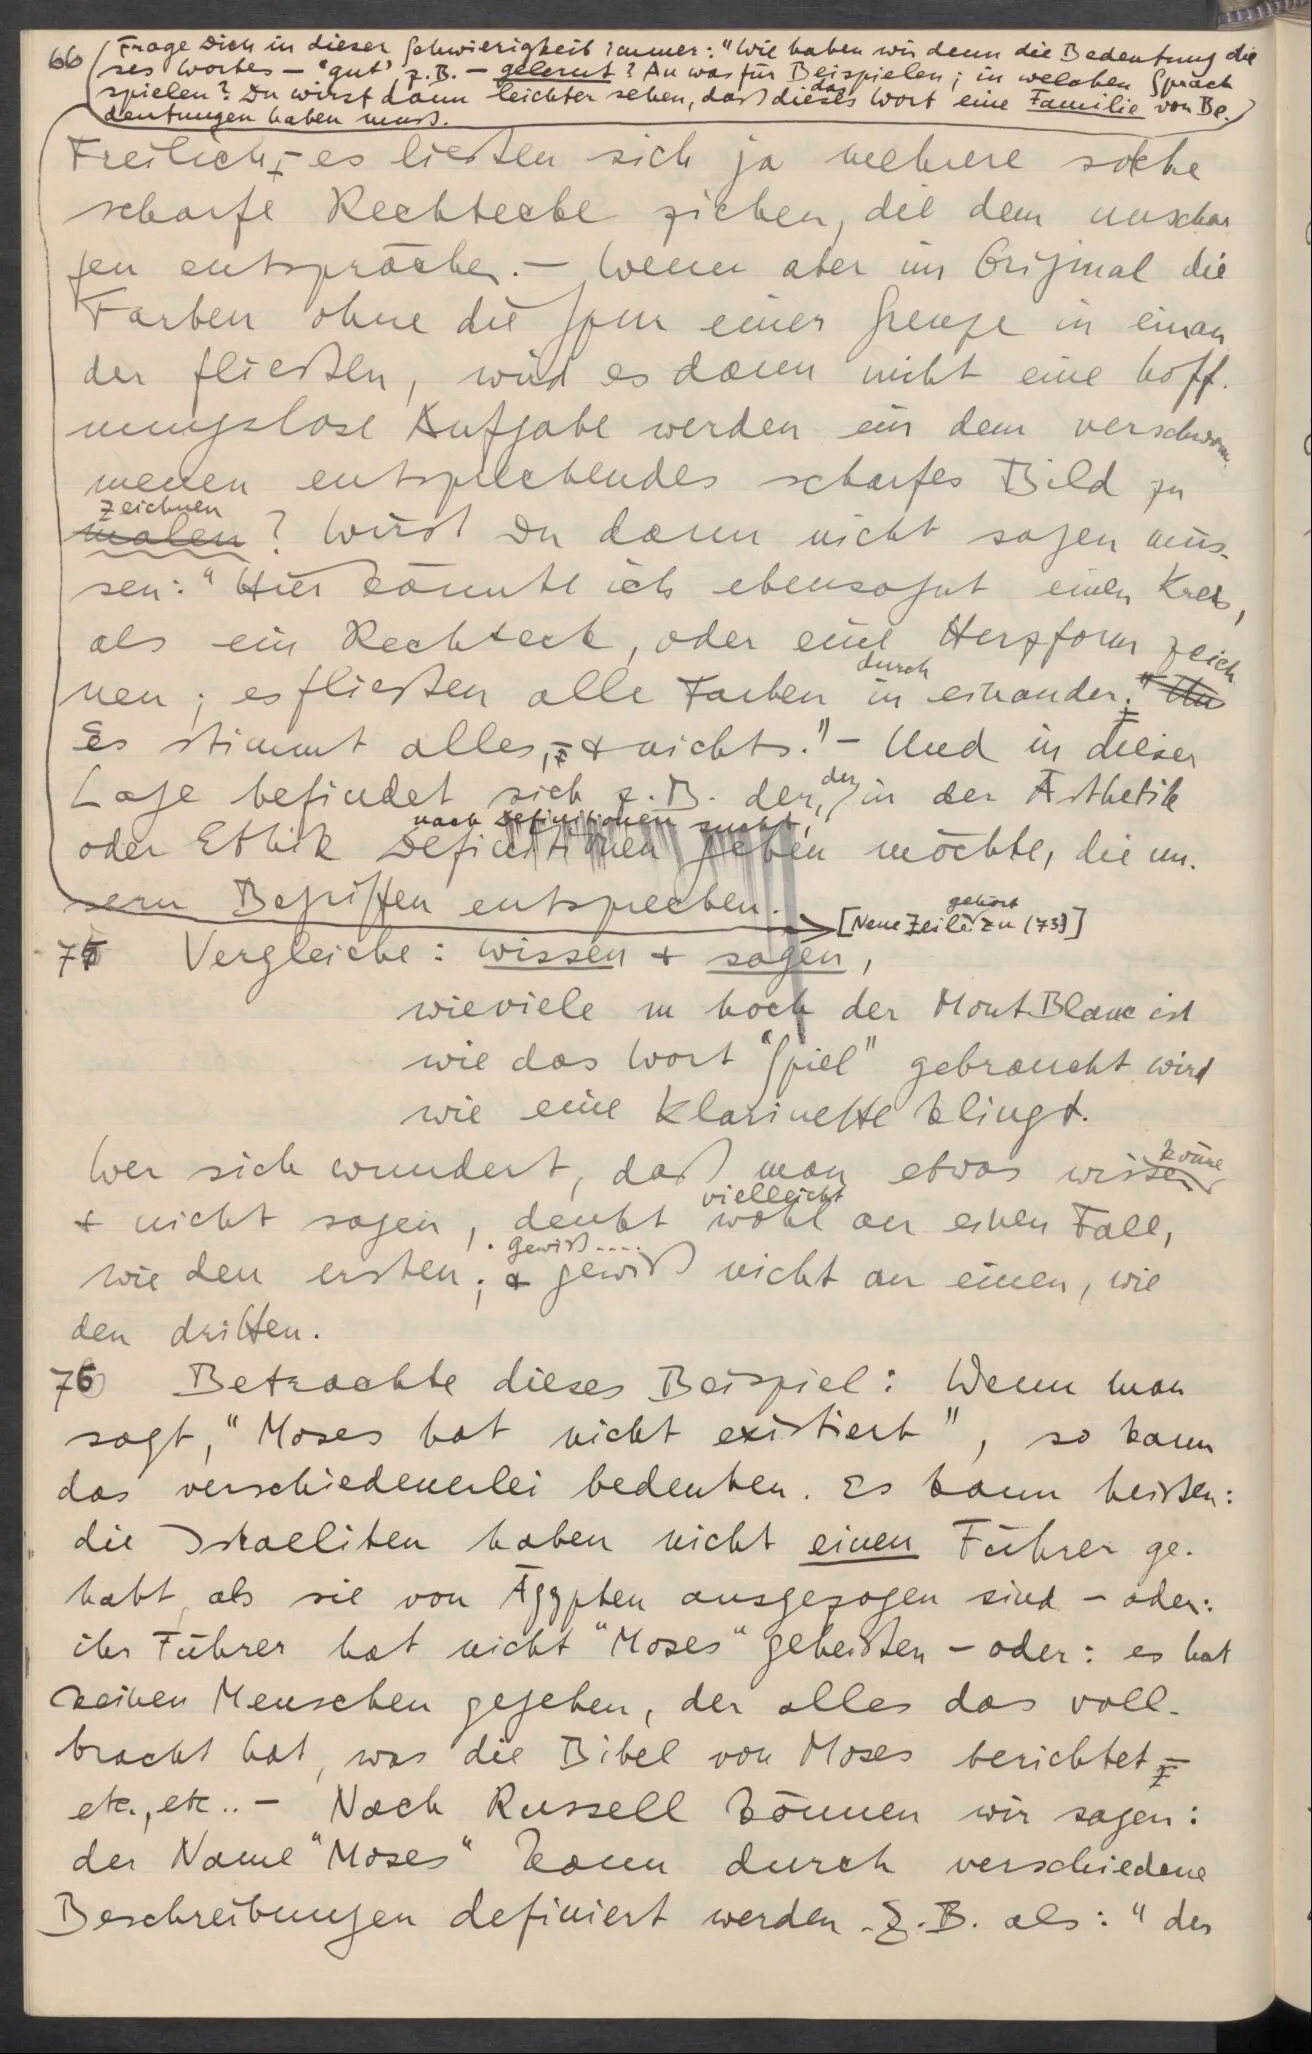 66 Frage Dich in dieser Schwierigkeit immer: "Wie haben wir denn die Bedeutung die
ses Wortes – 'gut', z.B. – gelernt? An was für Beispielen; in welchen Sprach
spielen? Du wirst dann leichter sehen, daß dieses das Wort eine Familie von Be-
deutungen haben muß.
Freilich, – es ließen sich ja mehrere solche
scharfe Rechtecke ziehen, die dem unschar
fen entsprächen. – Wenn aber im Original die
Farben ohne die Spur einer Grenze in einan
der fließen, wird es dann nicht eine hoff-
nungslose Aufgabe werden ein dem verschwom-
menen entsprechendes scharfes Bild zu
zeichnen
malen? Wirst Du dann nicht sagen müs-
sen: "Hier könnte ich ebensogut einen Kreis,
als ein Rechteck, oder eine Herzform zeich
durch
nen; es fließen alle Farben in einander." Un
Es stimmt alles, – & nichts." – Und in dieser
Lage befindet sich z.B. der, der in der Ästhetik
nach Definitionen sucht,
oder Ethik Definitionen geben möchte, die un-
sern Begriffen entsprechen.
gehört
[Neue Zeile zu (73)]
75 Vergleiche: wissen & sagen,
wieviele m hoch der Mont Blanc ist
wie das Wort "Spiel" gebraucht wird
wie eine Klarinette klingt.
könne
Wer sich wundert, daß man etwas wissen
vielleicht
& nicht sagen, denkt wohl an einen Fall,
. gewiß ....
wie den ersten; & gewiß nicht an einen, wie
den dritten.
76 Betrachte dieses Beispiel: Wenn man
sagt, "Moses hat nicht existiert", so kann
das verschiedenerlei bedeuten. Es kann heißen:
die Israeliten haben nicht einen Führer ge-
habt, als sie von Ägypten ausgezogen sind – oder:
ihr Führer hat nicht "Moses" geheißen – oder: es hat
keinen Menschen gegeben, der alles das voll-
bracht hat, was die Bibel von Moses berichtet –
etc., etc.. – Nach Russell können wir sagen:
der Name "Moses" kann durch verschiedene
Beschreibungen definiert werden. Z.B. als: "der